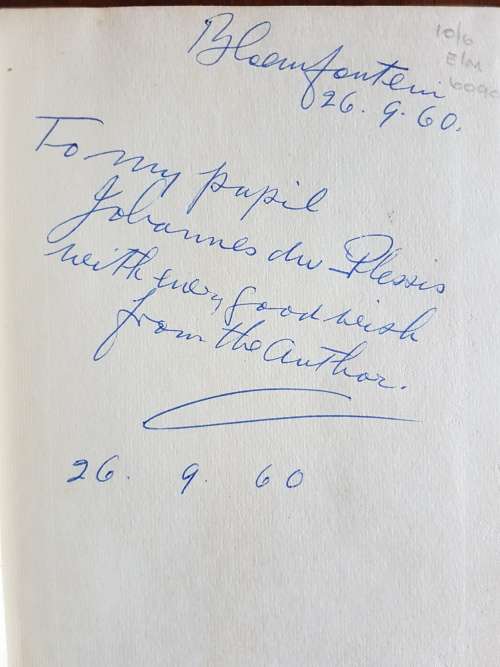 10/6
Bloemfontein
26.9.60.
To my pupil
Johannes du Plessis
with every good wish
from the Author.
26. 9. 60